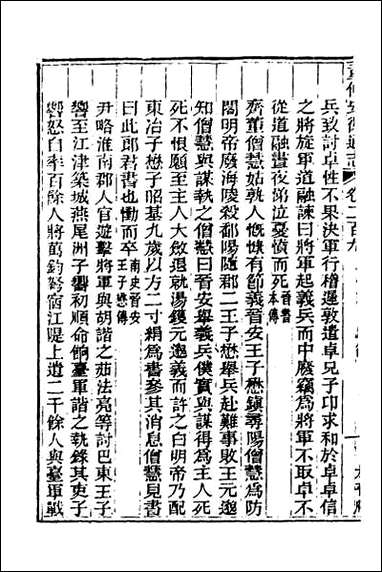 重修安徽通志 卷二百九
兵致討卓性不果決軍行稽遲敦遣卓兄子卬求和於卓卓信
之將旋軍道融諫曰將軍起義兵而中廢竊為將軍不取卓不
從道融晝夜涕泣憂憤而死晉書本傳
齊董僧慧姑孰人慨慷有節義晉安王子懋鎮尋陽僧慧為防
閤明帝廢海陵殺鄱陽隨郡二王子懋舉兵赴難事敗王元邈
知僧慧與謀執之僧慧曰晉安舉義兵僕實與謀得為主人死
死不恨願至主人大斂退就湯鑊元邈義而許之白明帝乃配
東冶子懋子昭基九歲以方二寸絹為書參其消息僧慧見書
曰此郎君書也慟而卒南史晉安王子懋傳
尹略淮南人官遊擊將軍與胡諧之茹法亮等討巴東王子
響至江津築城燕尾洲子響初順命餉臺軍諧之執錄其吏子
響怒白率百餘人將萬鈞弩宿江隄上遣二千餘人與臺軍戰